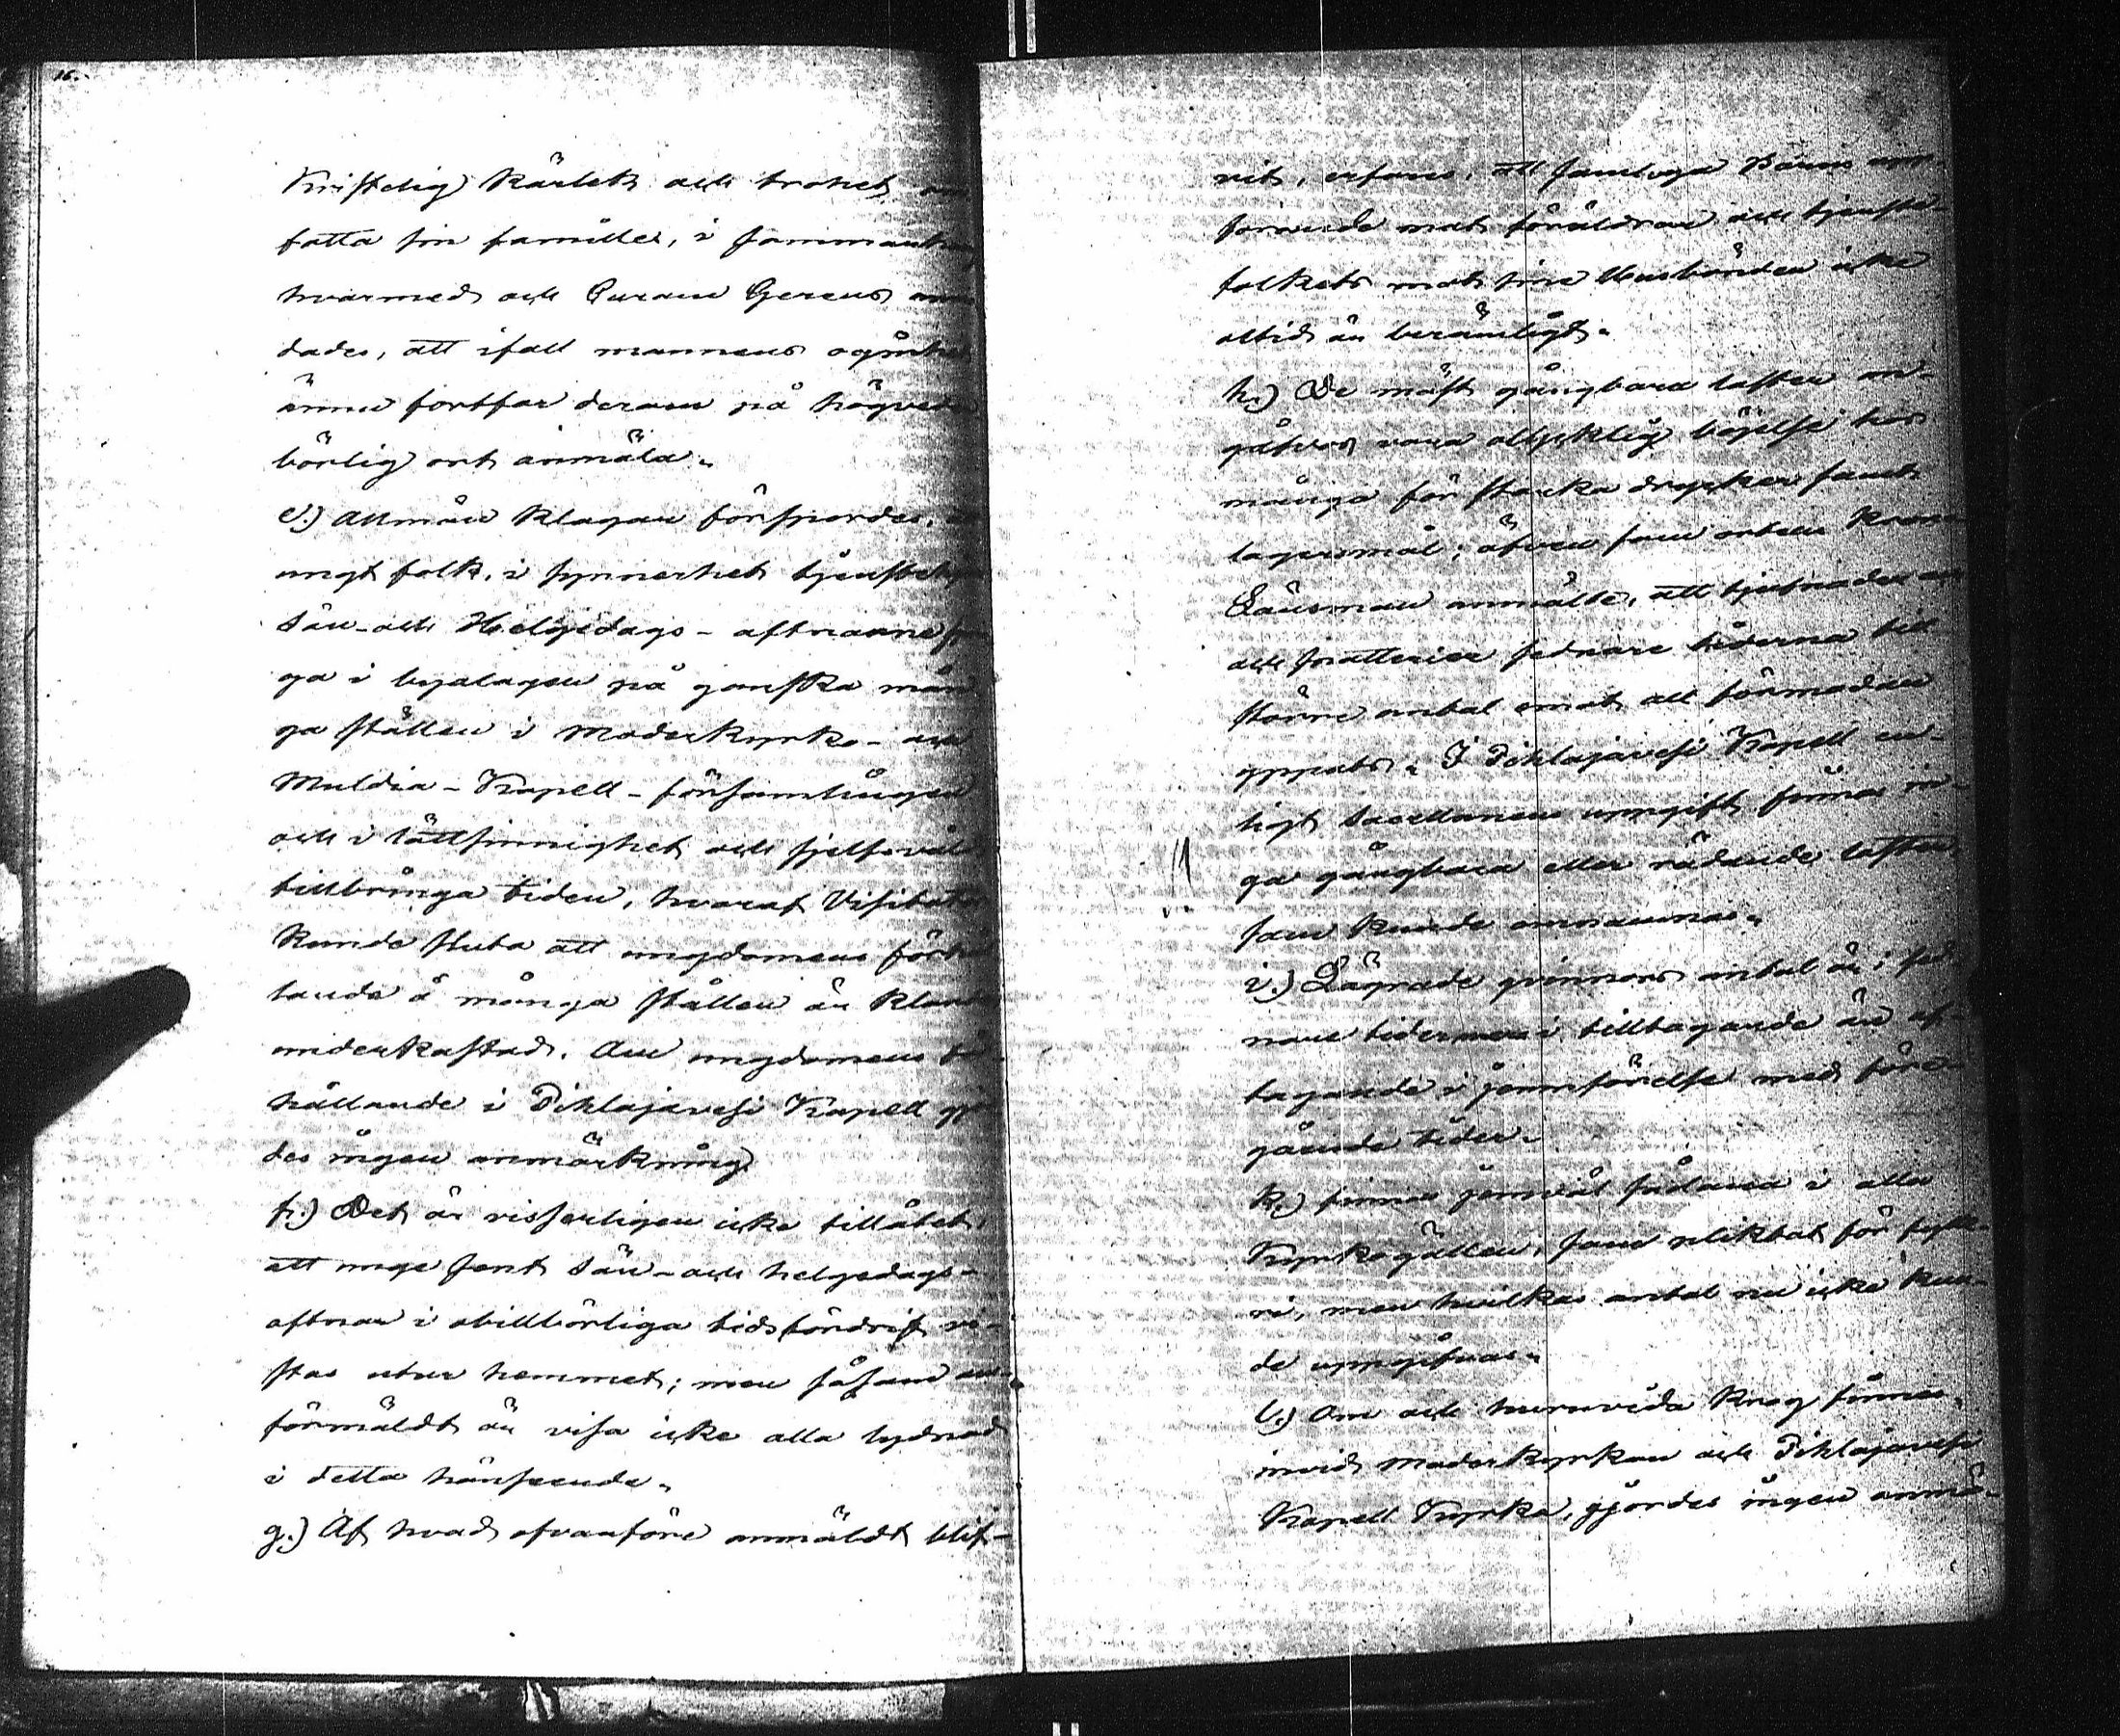 16.
Kristelig kärlek och trohet om
fatta sin familie, i sammanhang
hvarmed och Curam Gerens
dades, att ifall mannens ogint
ännu fortfar derom på högveder
börlig ort anmäla.
e.) Allmän klagan försporдes,
ungt folk, i synnerhet tjenste
Sön- och Helgedags-aftnarne
ga i byalagen på ganska mån
ga ställen i Moderkyrko- och
Muldia-Kapell-församlingen
och i lättsinnighet och sjelfsvåld
tillbringa tiden, hvaraf Visitator
kunde sluta att ungdomens förhål
lande å många ställen är klander
underkastad. Om ungdomens för
hållande i Pihlajavesi Kapell gjor
des ingen anmärkning
f.) Det är visserligen icke tillåtet,
att unge sent Sön- och helgedags-
aftnar i otillbörliga tidsfördrif vi-
stas utur hemmet; men såsom
förmäldt är visa icke alla lydnad
i detta hänseende.
g.) Af hvad ofvanföre anmäldt blif-
vit, erfares, att samtliga Barns upp-
förande mot föräldrar och tjenste-
folkets mot sine Husbönder icke
altid är berömligt.
h.) De mäst gångbara laster an-
gåfvos vara olycklig böjelse hos
många för starka drycker samt
lägersmål; äfven som orten Krono
Länsman anmälte, att tjufnader
och snatterier sednare tiderna till
större antal emot all förmodan
yppats. I Pihlajavesi Kapell en-
ligt Sacellanens uppgift finnes in-
ga gångbara eller rådande laster
som kunde omnämnas.
i.) Lägrade qvinnors antal är i sed-
nare tider mera i tilltagande än af-
tagande i jemnförelse med före-
gående tider.
k.) finnes jemväl sådana i alla
Kyrkogällen, som pliktat för fylle-
ri, men hvilkas antal nu icke kun-
de uppgifvas.
l.) Om och huruvida Krog finnes,
invid Moderkyrkan och Pihlajavesi
Kapell Kyrka, gjordes ingen anmä-